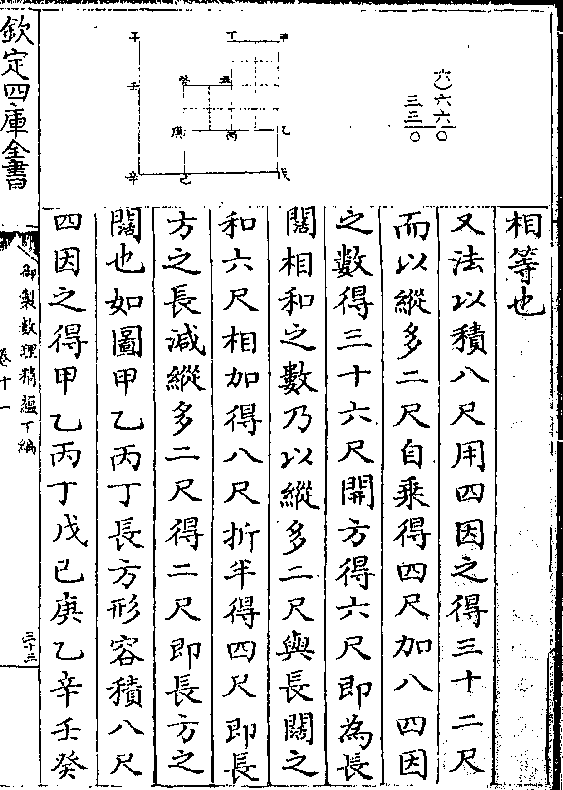 六)六六〇
三三〇
甲
丁
子
乙
丙
壬
癸
庚
戊
己
辛
相等也
又法以積八尺用四因之得三十二尺
而以縱多二尺自乘得四尺加八四因
之數得三十六尺開方得六尺即為長
闊相和之數乃以縱多二尺與長闊之
和六尺相加得八尺折半得四尺即長
方之長減縱多二尺得二尺即長方之
闊也如圖甲乙丙丁長方形容積八尺
四因之得甲乙丙丁戊己庚乙辛壬癸
欽定四庫全書
御製數理精蘊下編
卷十一
三十三